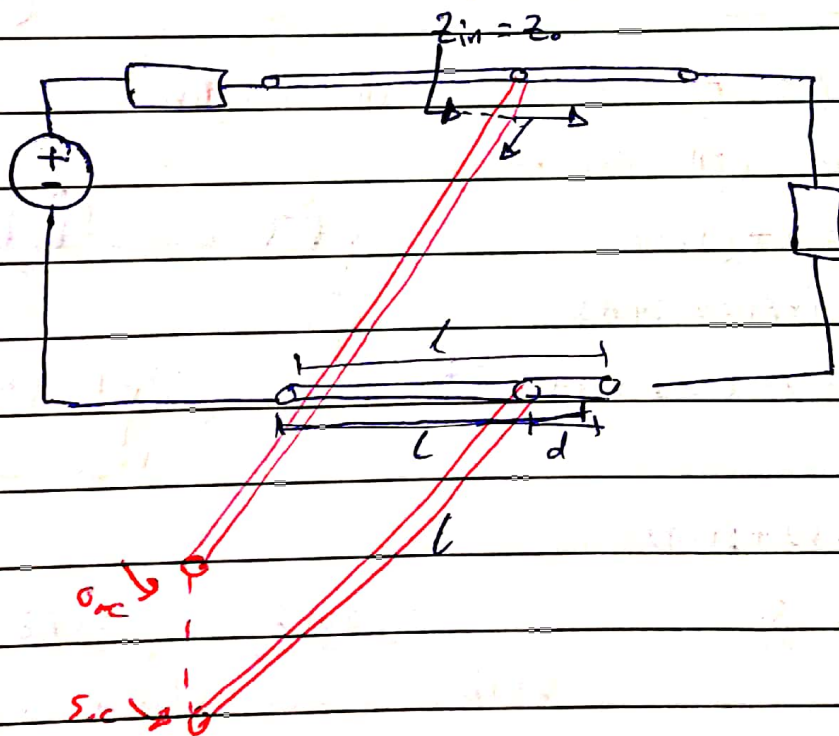 Zin = Z₀
+
-
l
l
d
l
o.c
s.c